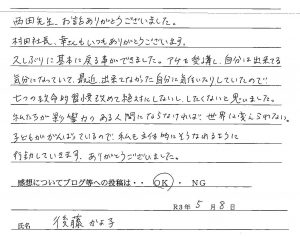 西田先生、お話ありがとうございました。
村田社長、幸さんもいつもありがとうございます。
久しぶりに基本に戻る事ができました。アチを受講し、自分は出来てる
気分になっていて、最近、出来てなかった自分に気付いたりしていたので
七つの致命的習慣改めて絶対にしないし、したくないと思いました。
私たちが影響力のある人間にならなければ、世界は変えられない。
子どもががんばっているので、私も主体的にそうなれるように
行動していきます。ありがとうございました。
感想についてブログ等への投稿は・・ OK ・ NG
R3年 5月 8日
氏名 後藤 かよ子